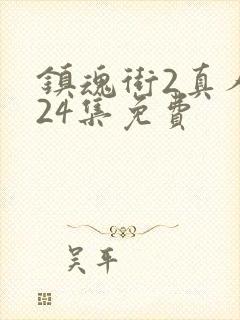 鎮魂街2真人
24集免費
吴平